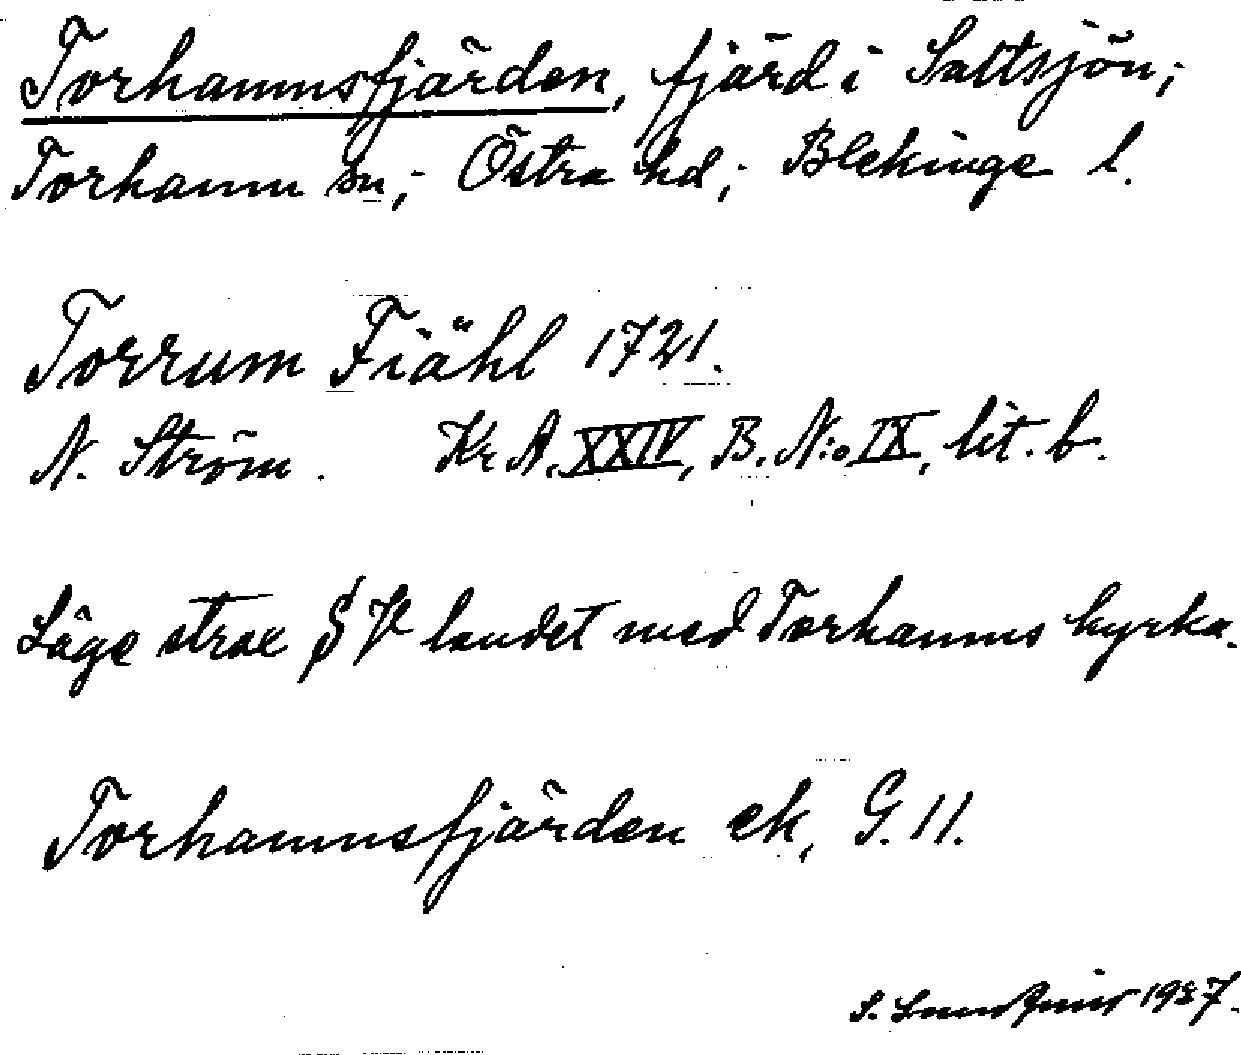 Torhamnsfjärden, fjärd i Saltsjön;
Torhamn sn; Östra hd; Blekinge l.
Torrum Fiähl 1721.
N. Ström. Kr A. XXIV, B. N:o IX, lit. b.
Läge strax landet med Torhamns kyrka.
Torhamnsfjärden ek, G. 11.
S. 1937.